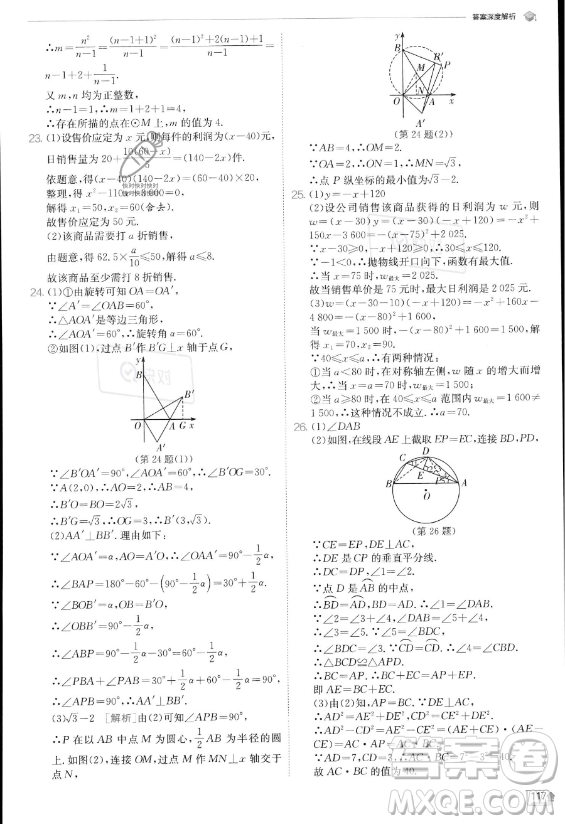 答案深度解析
∴m=n²/(n-1)=(n-1+1)²/(n-1)=((n-1)²+2(n-1)+1)/(n-1)=
n-1+2+1/(n-1).
又 m,n 均为正整数,
∴n-1=1,∴m=1+2+1=4,
∴存在所描的点在⊙M上,m 的值为 4.
23. (1)设售价应定为 x 元,则每件的利润为(x-40)元,
日销售量为 20+10(60-x)/5=(140-2x)件.
依题意,得(x-40)(140-2x)=(60-40)×20,
整理,得 x²-110x+3000=0,
解得 x₁=50,x₂=60(舍去).
故售价应定为 50 元.
(2)该商品需要打 a 折销售,
由题意,得 62.5×a/10≤50,解得 a≤8.
故该商品至少需打 8 折销售.
24. (1)①由旋转可知 OA=OA′,
∵∠A′=∠OAB=60°,
∴△AOA′是等边三角形,
∴∠AOA′=60°,∴旋转角 α=60°.
②如图(1),过点 B′作 B′G⊥x 轴于点 G,
y
B
B′
O
A
G
x
A′
(第 24 题(1))
∵∠B′OA′=90°,∠AOA′=60°,∴∠B′OG=30°.
∵A(2,0),∴OA′=OA=2.
∴B′O=2√3,∴B′G=√3.
(2)AA′⊥BB′. 理由如下:
∵∠AOA′=α,OA=OA′,∴∠OAA′=90°-1/2α,
∴∠BAP=180°-60°-(90°-1/2α)=30°+1/2α.
∵∠BOB′=α,OB=OB′,∴∠OBB′=90°-1/2α,
∴∠ABP=90°-1/2α-30°=60°-1/2α,
∴∠ABP+∠BAP=30°+1/2α+60°-1/2α=90°,
∴∠APB=90°,∴AA′⊥BB′.
(3)√3-2 [解析]由(2)可知∠APB=90°,
∴P 在以 AB 中点 M 为圆心,1/2AB 为半径的圆
上.如图(2),连接 OM,过点 M 作 MN⊥x 轴于
点 N,
y
B
B′
M
P
O
N
A
x
A′
(第 24 题(2))
∵AB=4,∴OM=2.
∵OA=2,∴ON=1,∴MN=√3,
∴点 P 纵坐标的最小值为√3-2.
25. (1)y=-x+120
(2)设公司销售该商品获得的日利润为 w 元,则
w=(x-30)y=(x-30)(-x+120)=-x²+
150x-3600=-(x-75)²+2025.
∵x-30≥0,-x+120≥0,∴30≤x≤120.
∵-1<0,∴抛物线开口向下,函数有最大值.
∴当 x=75 时,w最大=2025.
故当销售单价是 75 元时,最大日利润是 2025 元.
(3)w=(x-30-10)(-x+120)=-x²+160x-
4800=-(x-80)²+1600.
当 w最大=1500 时,-(x-80)²+1600=1500,
解得 x₁=70,x₂=90.
∵40≤x≤a,∴有两种情况:
①当 a<80 时,在对称轴左侧,w 随 x 的增大而增
大,∴当 x=a=70 时,w最大=1500;
②当 a≥80 时,在 40≤x≤a 范围内 w最大=1600≠
1500,∴这种情况不成立.∴a=70.
26. (1)∠DAB
(2)如图,在线段 AE 上截取 EP=EC,连接 BD,PD,
D
C
E
P
B
O
A
(第 26 题)
∵DE⊥AC,EP=CE,
∴DE 是 CP 的垂直平分线.
∴CD=DP,∴∠1=∠2.
∵点 D 是BD=AD的中点,
∴BD=AD,∴BD=AD,∴∠4=∠5.
∵∠2=∠3+∠4,∠1=∠DBA=∠5+∠6,
∴∠3=∠6. ∵CD=CD,∴∠3=∠DBC.
∴△BCD≌△APD.
∴BC=AP. ∴BC+CE=AP+PE.
即 AE=BC+CE.
(3)由(2)知,AP=BC,AE=BC+CE.
∵AD²=AE²+DE²,CD²=CE²+DE²,
∴AD²-CD²=AE²-CE²=(AE+CE)(AE-
CE)=AC·AP=AC·BC.
∴AC·BC=AD²-DC²=7²-3²=40.
故 AC·BC 的值为 40.
117